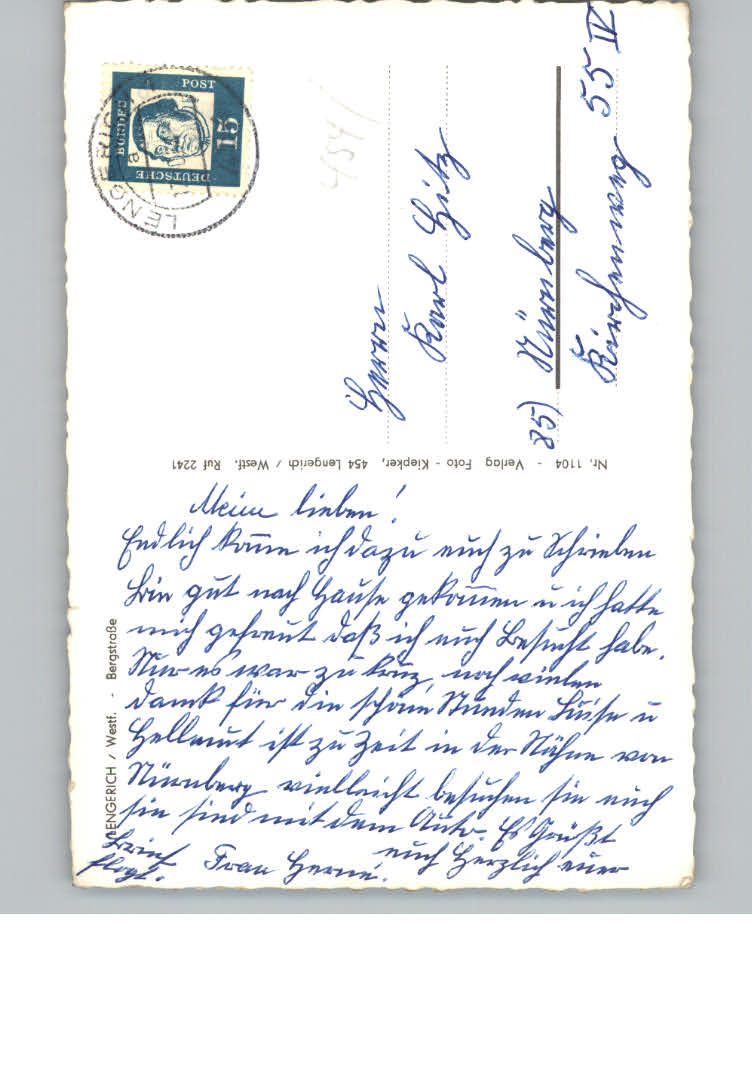 DEUTSCHE
POST
BERLIN
15
LENGERICH
Herrn
Karl
85) Nürnberg
Kirchenweg 55 IV
Nr. 1104 - Verlag Foto - Kiepker, 454 Lengerich / Westf. Ruf 2241
LENGERICH / Westf. - Bergstraße
Meine lieben!
Endlich kome ich dazu euch zu Schrieben
bin gut nach Hause gekomen u ich hatte
mich gefreut daß ich euch Besucht habe.
Nur es war zu kruz, noch vielen
damk für die schöne Stunden Luise u
Hellmut ist zu Zeit in der Nähne von
Nürnberg vielleicht besuchen sie euch
sie sind mit dem Auto. Es Grüßt
euch Herzlich euer
Frau
Brief
flogt.